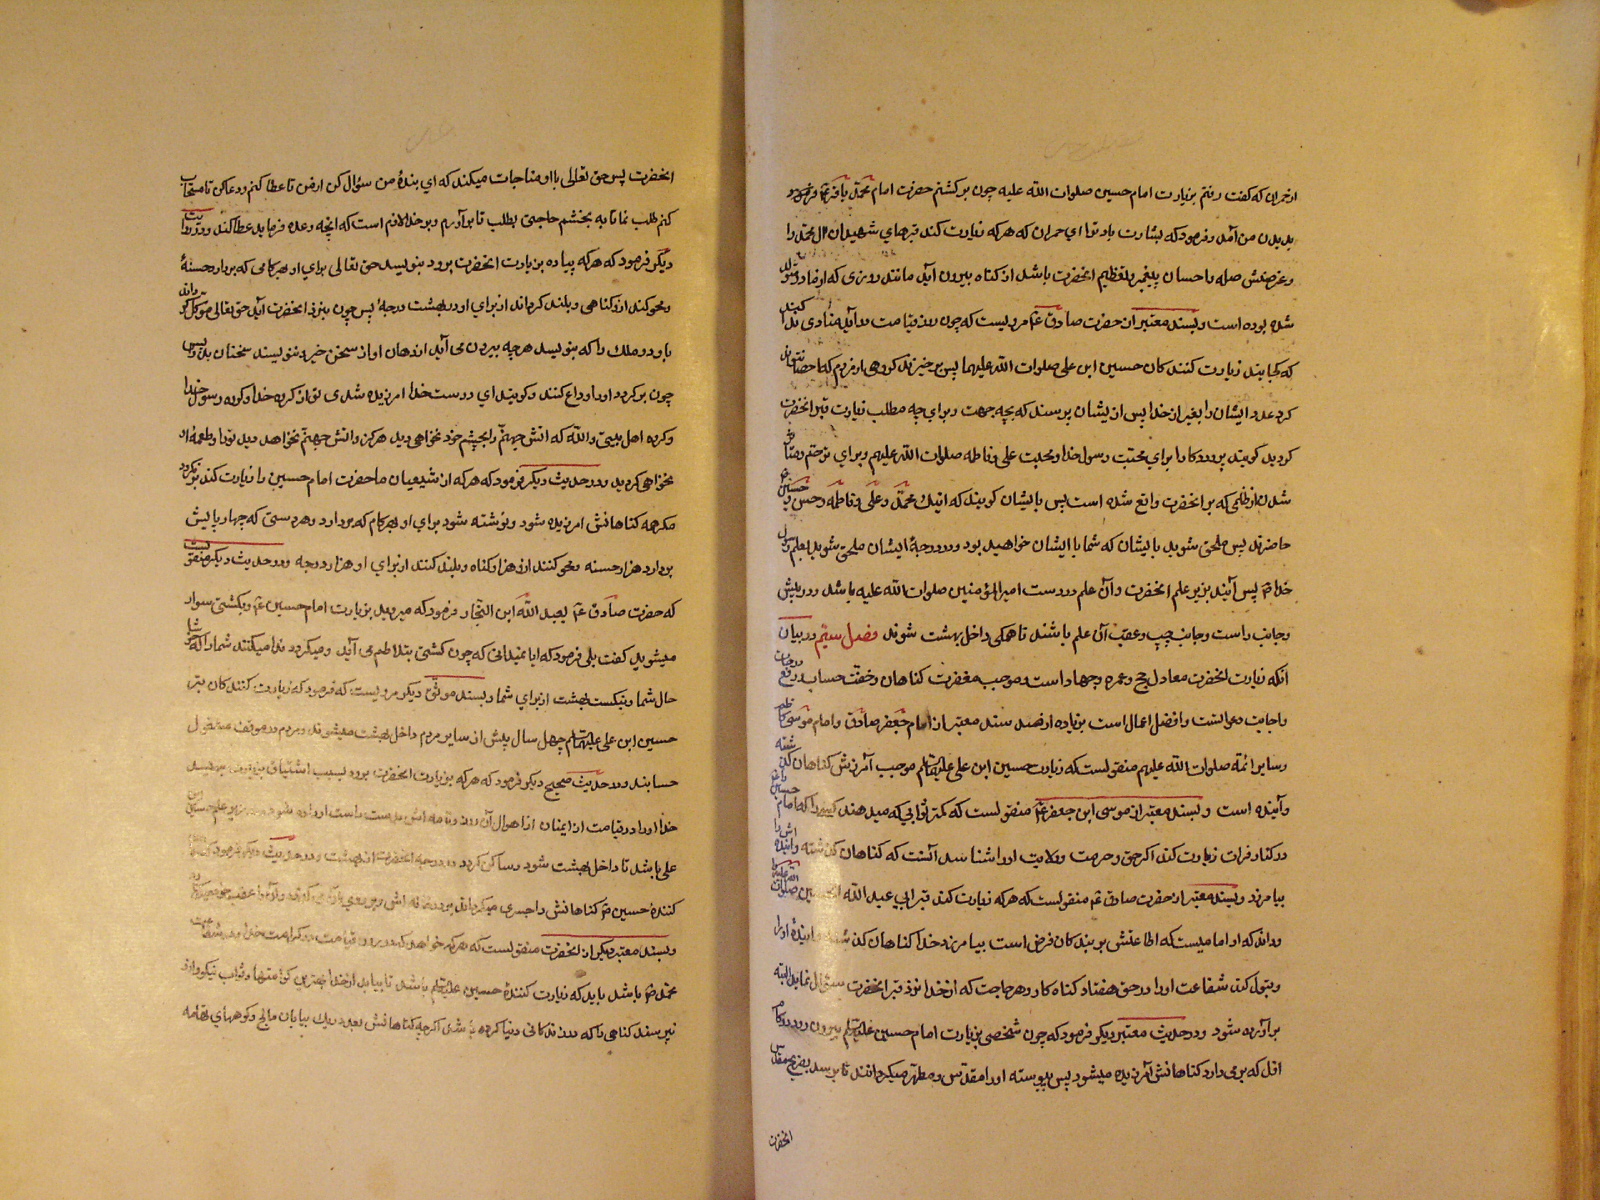 از حمران که گفت رفتم بزیارت امام حسین صلوات الله علیه چون برکشتم حضرت امام محمد باقر ع
بدیدن من آمد و فرمود که بشارت باد ترا ای حمران که هرکه زیارت کند قبرهای شهیدان آل محمد را
و غرضش صله و احسان پیغمبر و تعظیم انحضرت باشد از کناه بیرون آید مانند روزی که از مادر متولد
شده بوده است و بسند معتبر از حضرت صادق ع مرویست که چون روز قیامت درآید منادی ندا کند
که کجایند زیارت کنندکان حسین ابن علی صلوات الله علیهما پس برخیزند کروهی از مردم که احصا نتواند
کرد عدد ایشان را بغیر از خدا پس از یشان پرسند که بچه جهت و برای چه مطلب زیارت قبر انحضرت
کردید کویند پروردکارا برای محبت رسول خدا و محبت علی و فاطمه صلوات الله علیهم و برای ترحم
شدن از ظلمی که بر انحضرت واقع شده است پس بایشان کویند که اینک محمد و علی و فاطمه و حسن و حسین
حاضرند پس ملحق شوید بایشان که شما با ایشان خواهید بود در درجهٔ ایشان ملحق شوید بعلم رسول
خدا ص پس آیند بزیر علم انحضرت و آن علم در دست امیر المؤمنین صلوات الله علیه باشد و در پیش
و جانب راست و جانب چپ و عقب آن علم باشند تا همکی داخل بهشت شوند فصل سیم در بیان
آنکه زیارت انحضرت معادل حج و عمره و جهاد است و موجب مغفرت کناهان و خفت حساب و رفع درجات
و اجابت دعوات و افضل اعمال است بزیاده از صد سند معتبر از امام جعفر صادق و امام موسی کاظم
و سایر ائمهٔ صلوات الله علیهم منقولست که زیارت حسین ابن علی علیهما السلام موجب آمرزش کناهان کذشته
و آینده است و بسند معتبر از موسی ابن جعفر ع منقولست که کمتر ثوابی که میدهند کسی را که امام حسین را
در کنار فرات زیارت کند اکر حق و حرمت و ولایت او را شناسد آنست که کناهان کذشته و آینده اش را
بیامرزد و بسند معتبر از حضرت صادق ع منقولست که هرکه زیارت کند قبر ابی عبد الله الحسین صلوات الله علیه را
و داند که او امامیست که اطاعتش بر بندکان فرض است بیامرزد خدا کناهان کذشته و آیندهٔ او را
و قبول کند شفاعت او را در حق هفتاد کناه کار و هر حاجت که از خدا نزد قبر انحضرت سؤال نماید البته
برآورده شود و در حدیث معتبر دیکر فرمود که چون شخصی بزیارت امام حسین علیه السلام بیرون رود در کام
اول که برمی دارد کناهانش آمرزیده میشود پس پیوسته او را مقدس و مطهر میکردانند تا برسد بضریح مقدس
انحضرت
انحضرت پس حق تعالی با او مناجات میکند که ای بندهٔ من سؤال کن از من تا عطا کنم و دعا کن تا مستجاب
کنم طلب نما تا به بخشم حاجتی بطلب تا برآورم و بر خدا لازم است که آنچه وعده فرماید عطا کند و در روایت
دیکر فرمود که هرکه پیاده بزیارت انحضرت برود بنویسد حق تعالی برای او بهر کامی که بردارد حسنهٔ
و محو کند از و کناهی و بلند کرداند از برای او در بهشت درجهٔ پس چون بنزد انحضرت آید حق تعالی موکل کرداند
باو دو ملک را که بنویسد هرچه بیرون می آید از دهان او از سخن خیر و ننویسند سخنان بد و پس
چون برکردد او را وداع کنند و کویند ای دوست خدا امرزیده شدی تو از کروه خدا و کروه رسول خدا
و کروه اهل بیتی والله که اتش جهنم را بچشم خود نخواهی دید هرکز و اتش جهنم نخواهد دید ترا و طعمهٔ او
نخواهی کردید و در حدیث دیکر فرمود که هرکه از شیعیان ما حضرت امام حسین را زیارت کند برنکردد
مکر همه کناهانش امرزیده شود و نوشته شود برای او بهر کام که بردارد و هر دستی که چهار پایش
بردارد هزار حسنه و محو کنند از و هزار کناه و بلند کنند از برای او هزار درجه و در حدیث دیکر منقولست
که حضرت صادق ع بعبد الله ابن النجار فرمود که میروید بزیارت امام حسین ع و بکشتی سوار
میشوید کفت بلی فرمود که ایا نمیدانی که چون کشتی بتلاطم می آید و میکردد ندا میکنند شما را که خوشا
حال شما و نیکست بهشت از برای شما و بسند موثق دیکر مرویست که فرمود که زیارت کنندکان قبر
حسین ابن علی علیهما السلام چهل سال پیش از سایر مردم داخل بهشت میشوند و مردم در موقف مشغول
حسابند و در حدیث صحیح دیکر فرمود که هرکه بزیارت انحضرت برود بسبب اشتیاق
خدا او را در قیامت از ایمنان از اهوال آن روز و نامه اش بدست راست او داده شود و در زیر علم حسین ابن
علی باشد تا داخل بهشت شود و ساکن کردد در درجه انحضرت از بهشت و در حدیث دیکر فرمود که زیارت
کنندهٔ حسین ع کناهانش را جسری میکرداند بر در خانه اش
و بسند معتبر دیکر از انحضرت منقولست که هرکه خواهد که در روز قیامت در کرامت خدا و در شفاعت
محمد ص باشد باید که زیارت کنندهٔ حسین علیه السلام باشد تا بیابد از خدا بهترین کرامتها و ثواب نیکو و از و
نپرسند کناهی را که در زندکانی دنیا کرده باشد اکرچه کناهانش بعدد ریک بیابان عالج و کوههای تهامه